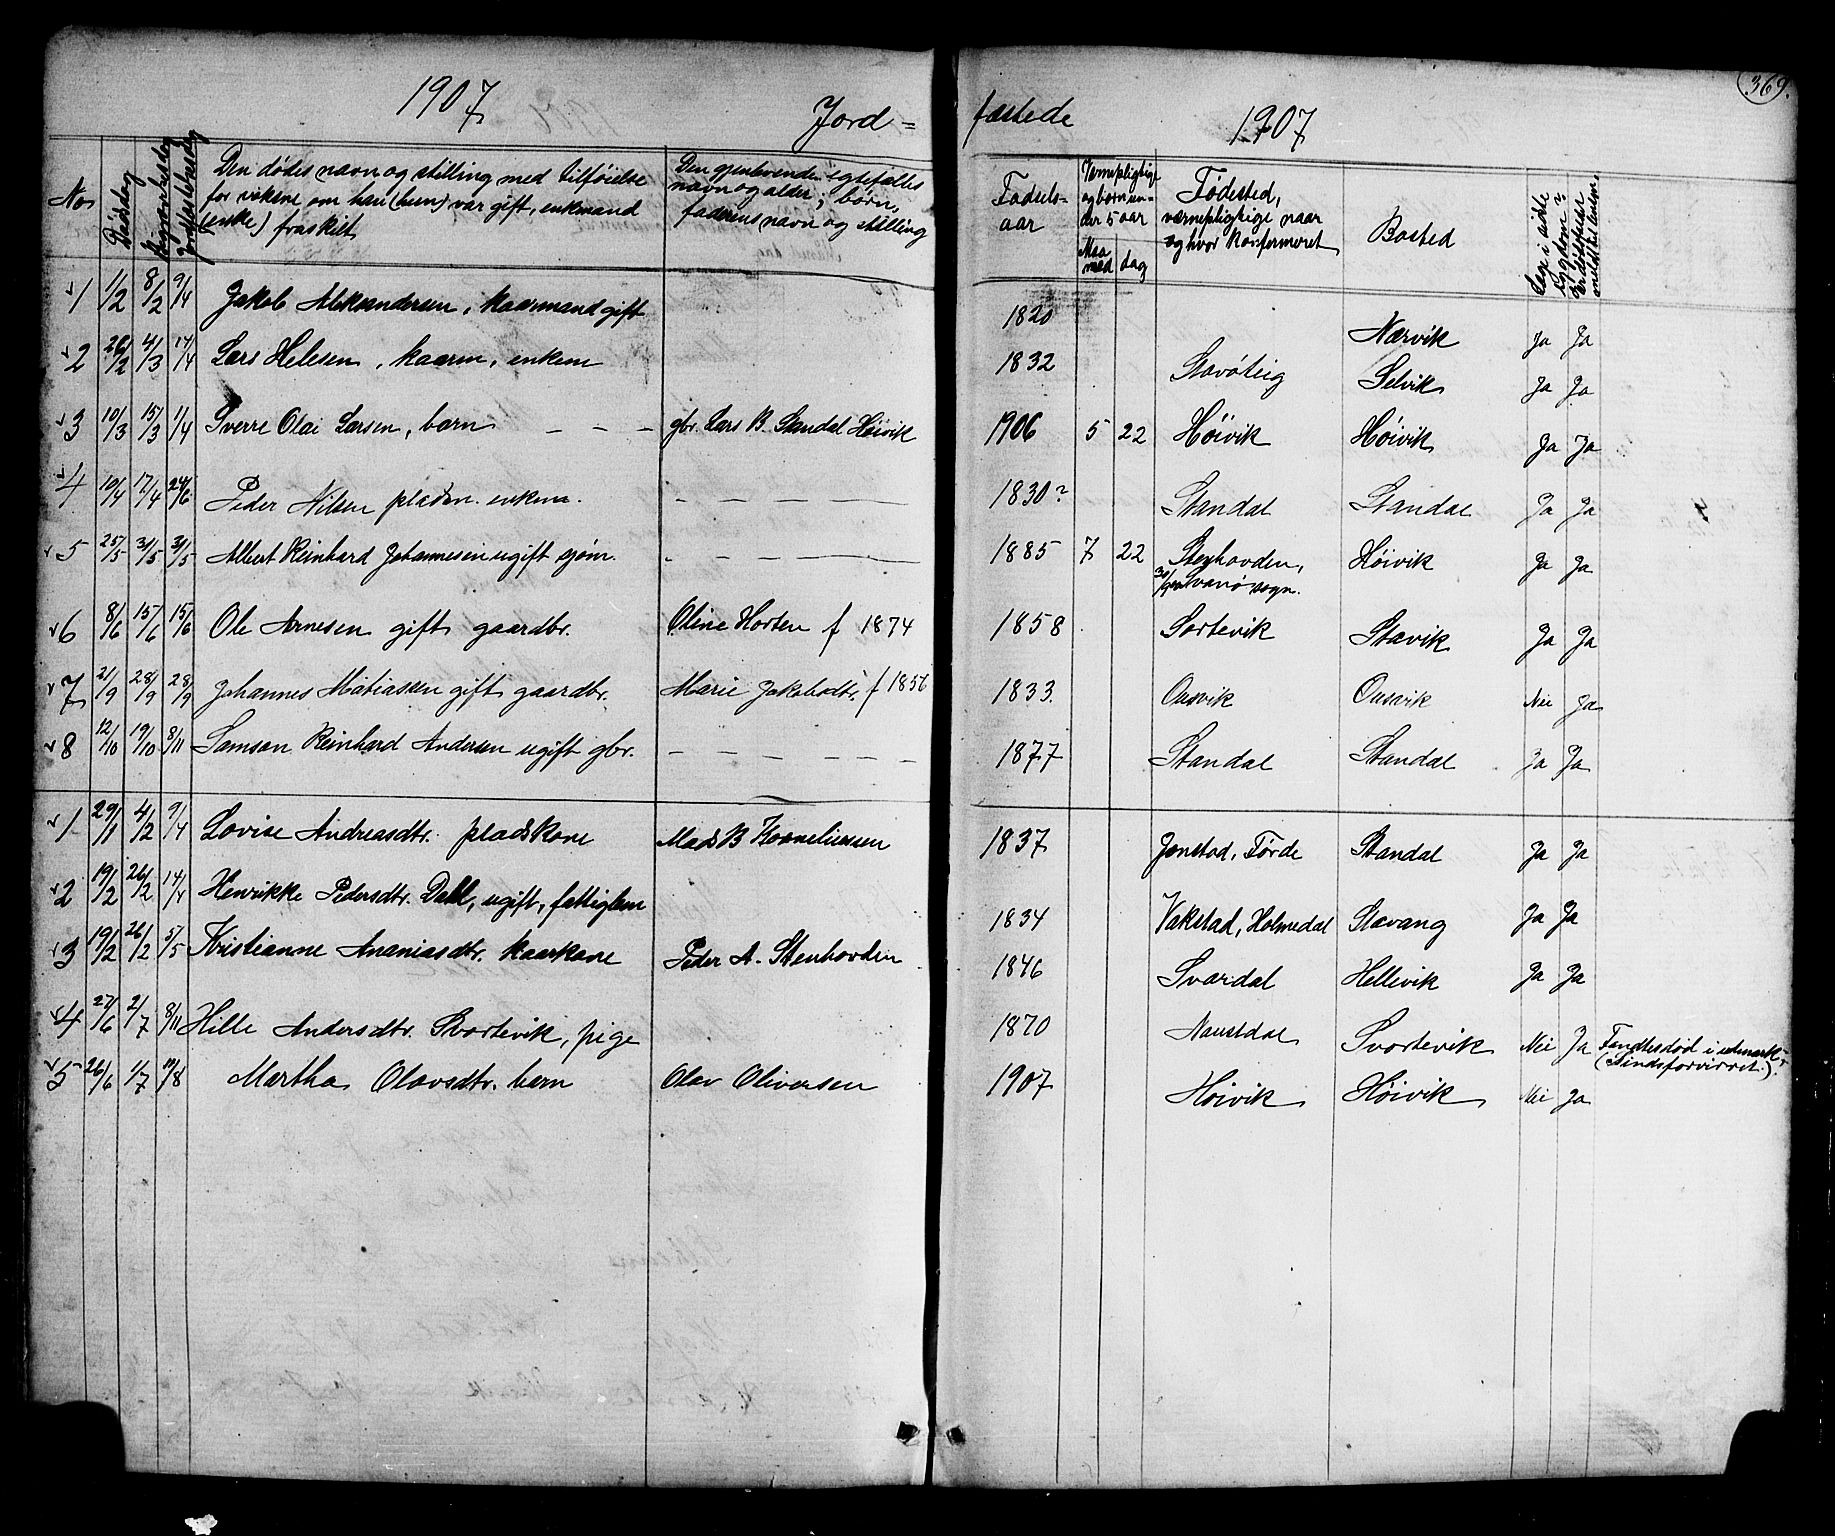 369.
1907 Jord = fæstede 1907
No Dødsdag Jordfæstelsesdag Den dødes navn og stilling med tilføielse for vikene om han (hun) var gift, enkemand (enke) fraskilt Den gjenlevende egtefælles navn og alder; børn, faderens navn og stilling Fødsels-aar Værnepligtige og børn un-der 5 aar Maaned dag Fødested, værnepligtige naar og hvor konfirmeret Bosted
1 1/2 8/2 9/4 Jakob Aleksandersen, kaarmand gift 1820 Nærvik Ja Ja
2 26/2 4/3 14/4 Lars Helesen, kaarm, enkem 1832 Stavøteig Selvik Ja Ja
3 10/3 15/3 1/4 Sverre Olai Larsen, barn — — — gbr. Lars B. Standal Høivik 1906 5 22 Høivik Høivik Ja Ja
4 10/4 17/4 24/6 Peder Nilsen pladsm. enkem. — — — — 1830? Standal Standal Ja Ja
5 25/5 31/5 31/5 Albert Reinhard Johannesen ugift sjøm. — — — — 1885 7 22 Høivik Ja Ja
6 8/6 15/6 15/6 Ole Arnesen gift gaardbr. Oline Horten f 1874 1858 Sortevik Stavik Ja Ja
7 21/9 28/9 28/9 Johannes Matiassen gift gaardbr. Marie Jakobsdtr, f 1856 1833. Ousvik Ousvik Nei Ja
8 12/10 19/10 8/11 Samson Reinhard Andersen ugift gbr. — — — — — — 1877 Standal Standal Ja Ja
1 29/1 4/2 9/4 Lovise Andreasdtr. pladskone Mads B Korneliussen 1837 Jonstad, Førde Standal Ja Ja
2 19/2 26/2 14/4 Henrikke Pedersdtr. Dahl, ugift, fattiglem 1834 Vakstad, Holmedal Stavang Ja Ja
3 19/2 26/2 5/5 Kristianne Ananiasdtr. kaarkone Peder A. Stenhovden 1846 Svardal Hellevik Ja Ja
4 27/6 2/7 8/11 Hille Andersdtr. Svortevik, pige 1870 Naustdal Svortevik Nei Ja Fandtes død i udmark (Sindsforvirret).
5 26/6 1/7 19/8 Martha Olavsdtr. barn Olav Oliversen 1907 Høivik Høivik Nei Ja